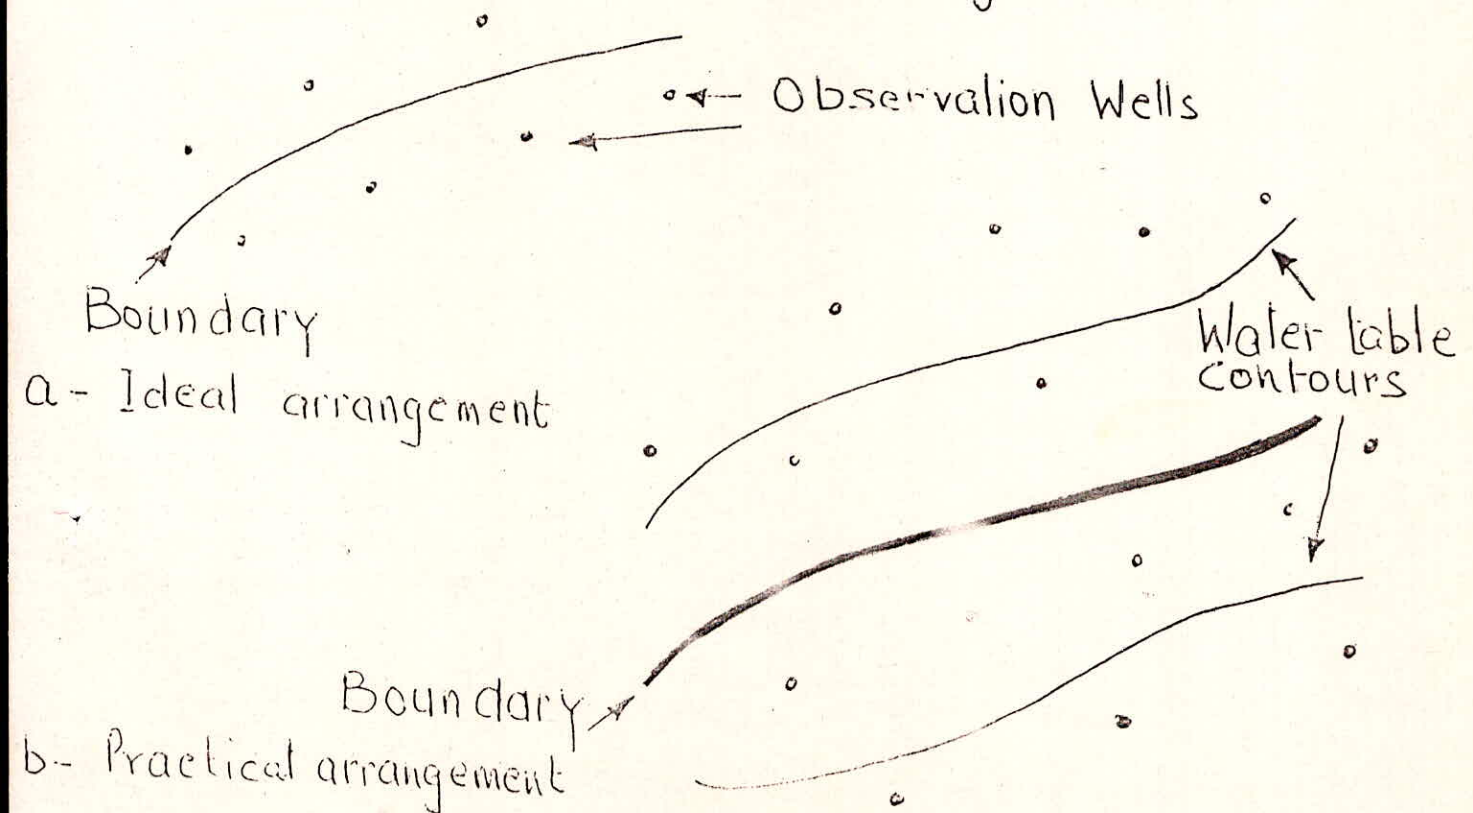 Observation Wells
Boundary
a - Ideal arrangement
Water table
contours
Boundary
b - Practical arrangement